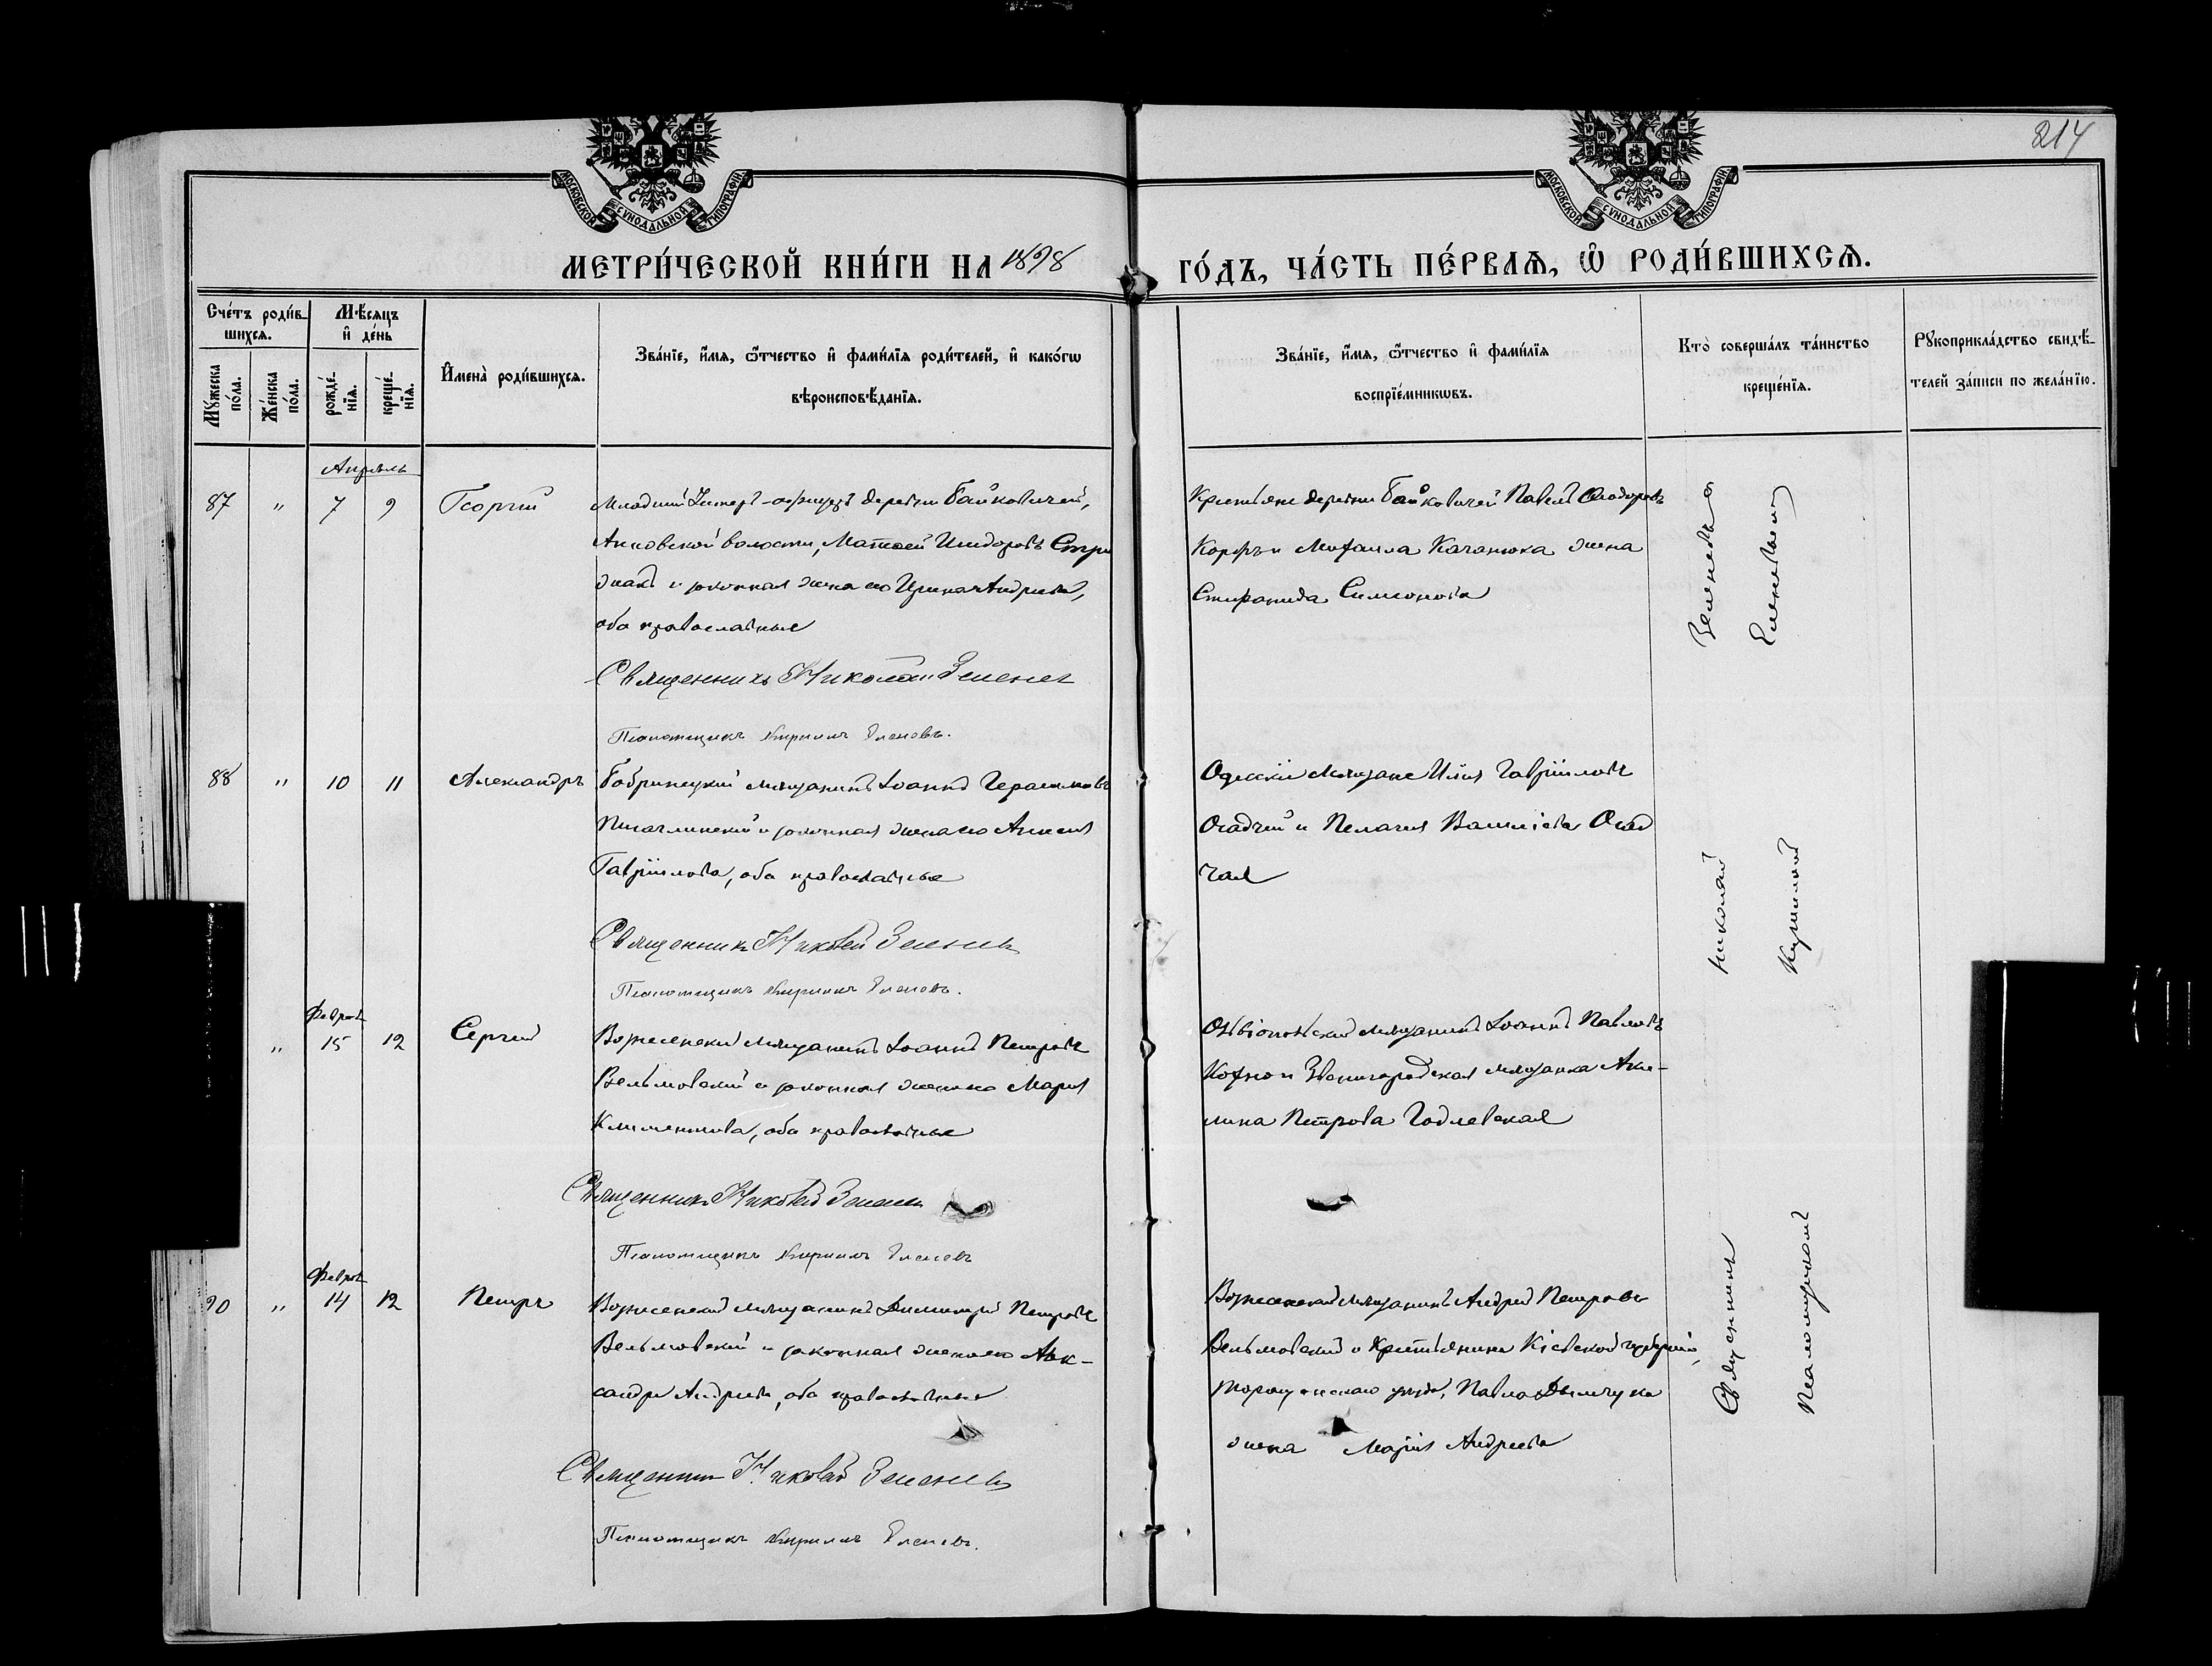 214
МОСКОВСКОЙ СѴНОДАЛЬНОЙ ТИПОГРАФІИ
МОСКОВСКОЙ СѴНОДАЛЬНОЙ ТИПОГРАФІИ
МЕТРИ́ЧЕСКОЙ КНИ́ГИ НА 1898 ГО́ДЪ, ЧА́СТЬ ПЕ́РВАѦ, Ѽ РОДИ́ВШИХСѦ.
Сче́тъ роди́в-
шихсѧ.
Мꙋжеска по́ла.
Же́нска по́ла.
Мѣ́сѧцъ
и҆ де́нь
рожде́-
нїѧ.
креще́-
нїѧ.
И҆мена̀ роди́вшихсѧ.
Зва́нїе, и҆́мѧ, ѻ҆́тчество и҆ фами́лїѧ роди́телей, и҆ како́гѡ
вѣроисповѣ́данїѧ.
Зва́нїе, и҆́мѧ, ѻ҆́тчество и҆ фами́лїѧ
воспрїе́мникѡвъ.
Кто̀ соверша́лъ та́инство
креще́нїѧ.
Рꙋкоприкла́дство свидѣ́-
телей за́писи по жела́нїю.
Апрѣль
87 " 7 9 Георгій
Младшій Унтеръ-офицеръ деревни Байковичей,
волости, Матѳей Исидоровъ
и законная жена его Ирина Андреева,
оба православные
Священникъ Николай Зеленев
Псаломщикъ Кириллъ Еленевъ.
Крестьяне деревни Байковичей Павелъ Ѳеодоровъ
и Михаила Качанюка жена
Стефанида Симеонова
88 " 10 11 Александръ
Бобринецкій мѣщанинъ Іоаннъ Герасимовъ
и законная жена его Анисія
Гавріилова, оба православные
Священникъ Николай Зеленевъ
Псаломщикъ Кириллъ Еленевъ.
Одесскіе мѣщане Илія Гавріиловъ
Осадчій и Пелагія Василіева Осад
чая
Феврал
" 15 12 Сергій
Вознесенскій мѣщанинъ Іоаннъ Петровъ
Вельмовскій и законная жена его Марія
Климентова, оба православные
Священникъ Николай Зеленевъ
Псаломщикъ Кириллъ Еленевъ
Ольвіопольскій мѣщанинъ Іоаннъ Павловъ
и Звенигородская мѣщанка Аки-
лина Петрова Годлевская
Феврал
90 " 14 12 Петръ
Вознесенскій мѣщанинъ Димитрій Петровъ
Вельмовскій и законная жена его Алек-
сандра Андреева, оба православные
Священникъ Николай Зеленевъ
Псаломщикъ Кириллъ Еленевъ.
Вознесенскій мѣщанинъ Андрей Петровъ
Вельмовскій и Крестьянина Кіевской губерніи,
уѣзда, Павла
жена Марія Андреева
Священникъ Николай Зеленевъ
Псаломщикъ Кириллъ Еленевъ